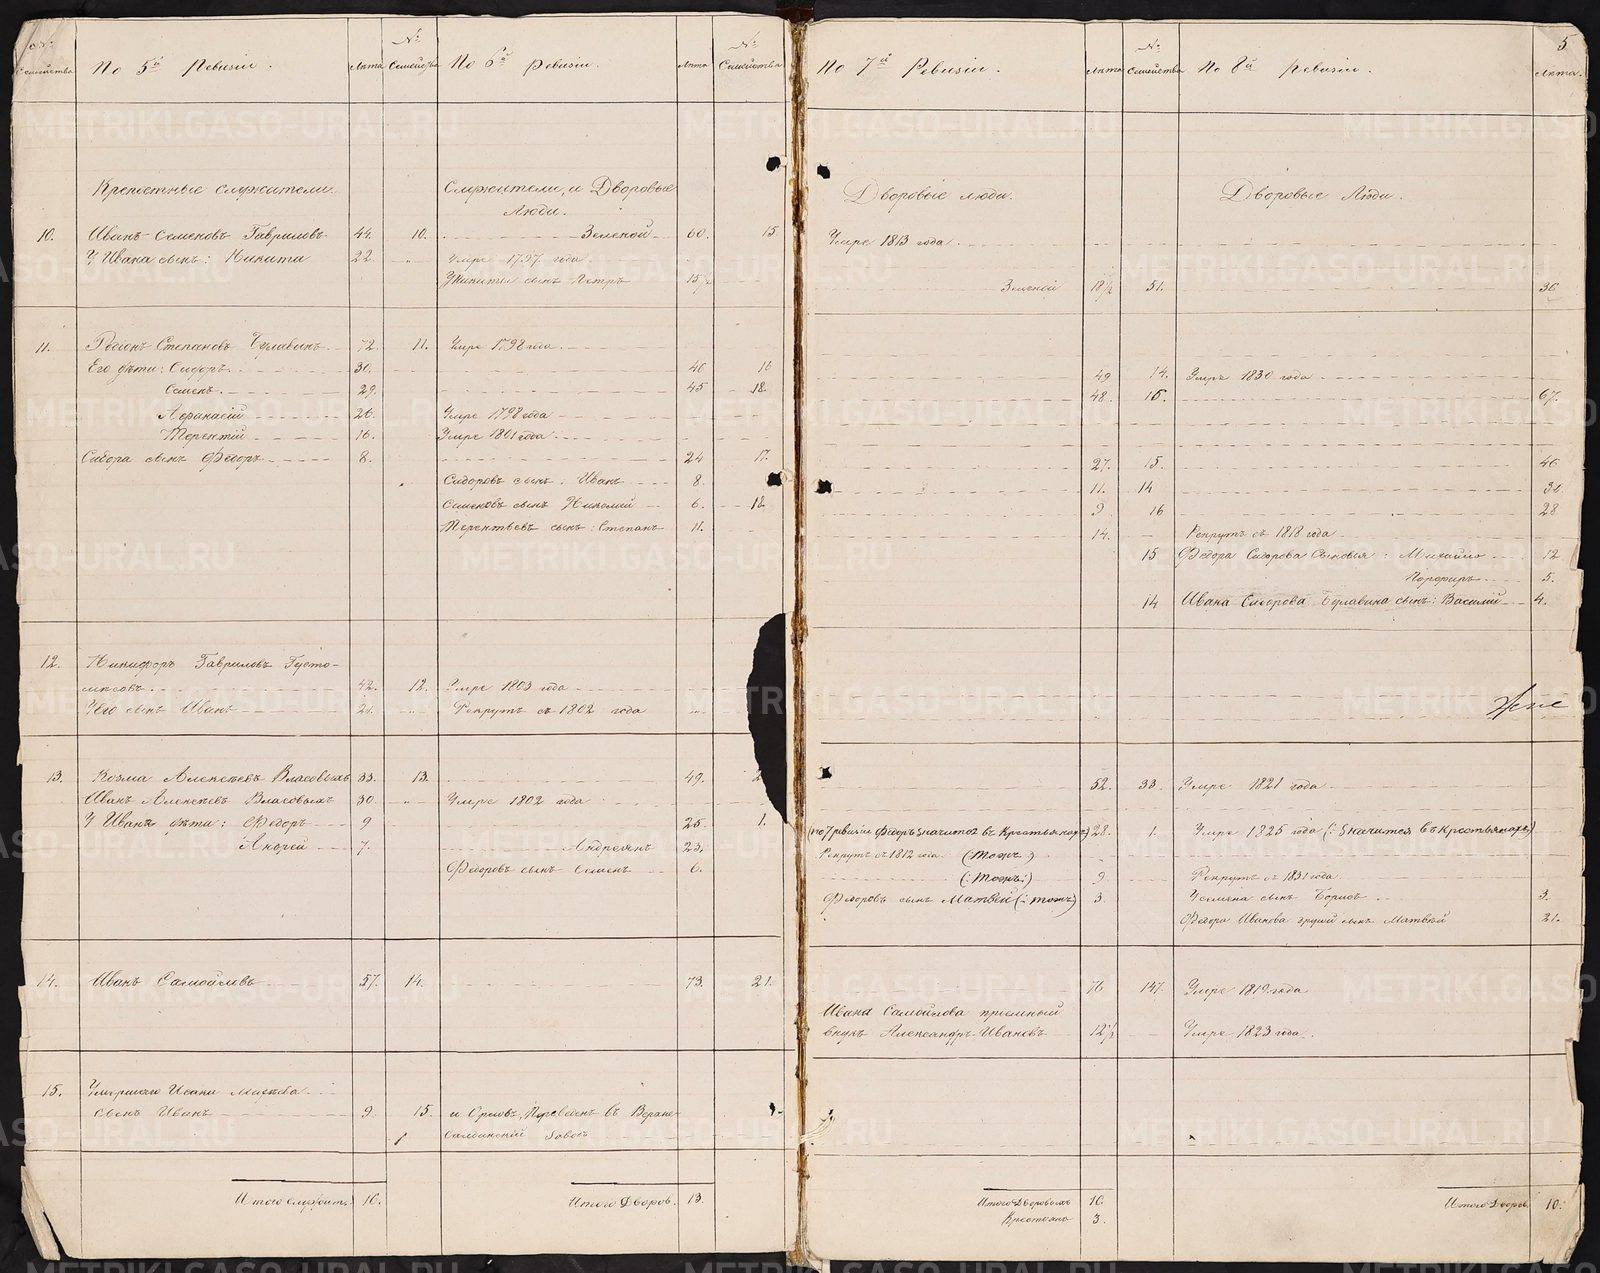 № Семейства По 5й Ревизіи. Лѣта № Семейства По 6й Ревизіи. Лѣта № Семейства
Крепостные служители.
Служители, и Дворовые
люди.
10. Иванъ Семеновъ Гавриловъ 44. 10. Зеленой 60. 15
У Ивана сынъ: Никита 22 " Умре 1797 года
У Никиты сынъ Петръ 15½
11. Родіонъ Степановъ 72. 11. Умре 1798 года.
Его дѣти: Сидоръ. 30. 46 16
Семенъ. 29. 45 18.
Афанасій 26. Умре 1798 года
Терентій 16. Умре 1801 года.
Сидора сынъ Федоръ 8. 24 17.
Сидоровъ сынъ: Иванъ 8.
Семеновъ сынъ Николай 6. 18.
Терентьевъ сынъ: Степанъ 11.
12. Никифоръ Гавриловъ
42. 12. Умре 1803 года
Его сынъ Иванъ 21. " Рекрутъ съ 1802 года
13. Козма Алексѣевъ Власовыхъ 33. 13. 49. 2
Иванъ Алексѣевъ Власовыхъ 30 " Умре 1802 года
У Ивана дѣти: Федоръ 9 25. 1.
Андрей 7. Андреянъ 23.
Федоровъ сынъ Семенъ 6.
14. Иванъ Самойловъ 57. 14. 73. 21.
15. Умершаго Исаки
сынъ Иванъ 9 15. и Орловъ, Переведенъ въ Верхне-
Салдинский завод
Итого служит. 16. Итого Дворов. 13.
5
По 7й Ревизіи. Лѣта № Семейства По 8й Ревизіи. Лѣта.
Дворовые люди. Дворовые Люди.
Умре 1813 года.
Зеленой 18½ 51. 36
49 14. Умре 1830 года
48. 16. 67.
27. 15. 46
11. 14 31
9 16 28
14. — Рекрутъ съ 1818 года
15 Федора Сидорова сыновья: Михайло 12
Порфиръ 5.
14 Ивана Сидорова сынъ: Василий 4.
52. 33. Умре 1821 года.
(по 7 ревизіи Федоръ значится въ Крестьянахъ) 28. 1. Умре 1825 года (: значится въ крестьянахъ)
Рекрутъ съ 1812 года. (Тожъ:)
(: Тожъ:) 9 Рекрутъ съ 1831 года.
Федоровъ сынъ Матвей (: тожъ) 3. У Семена сынъ Борисъ 3.
Федора Иванова другой сынъ Матвѣй 21.
76 147. Умре 1819 года
Ивана Самойлова приемный
внукъ Александръ Ивановъ 12½ Умре 1823 года.
Итого Дворовыхъ 10. Итого Дворов. 10.
Крестьянъ 3.
METRIKI.GASO-URAL.RU